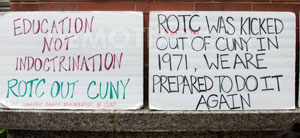 EDUCATION
NOT
INDOCTRINATION
ROTC OUT CUNY
ROTC WAS KICKED
OUT OF CUNY IN
1971, WE ARE
PREPARED TO DO IT
AGAIN